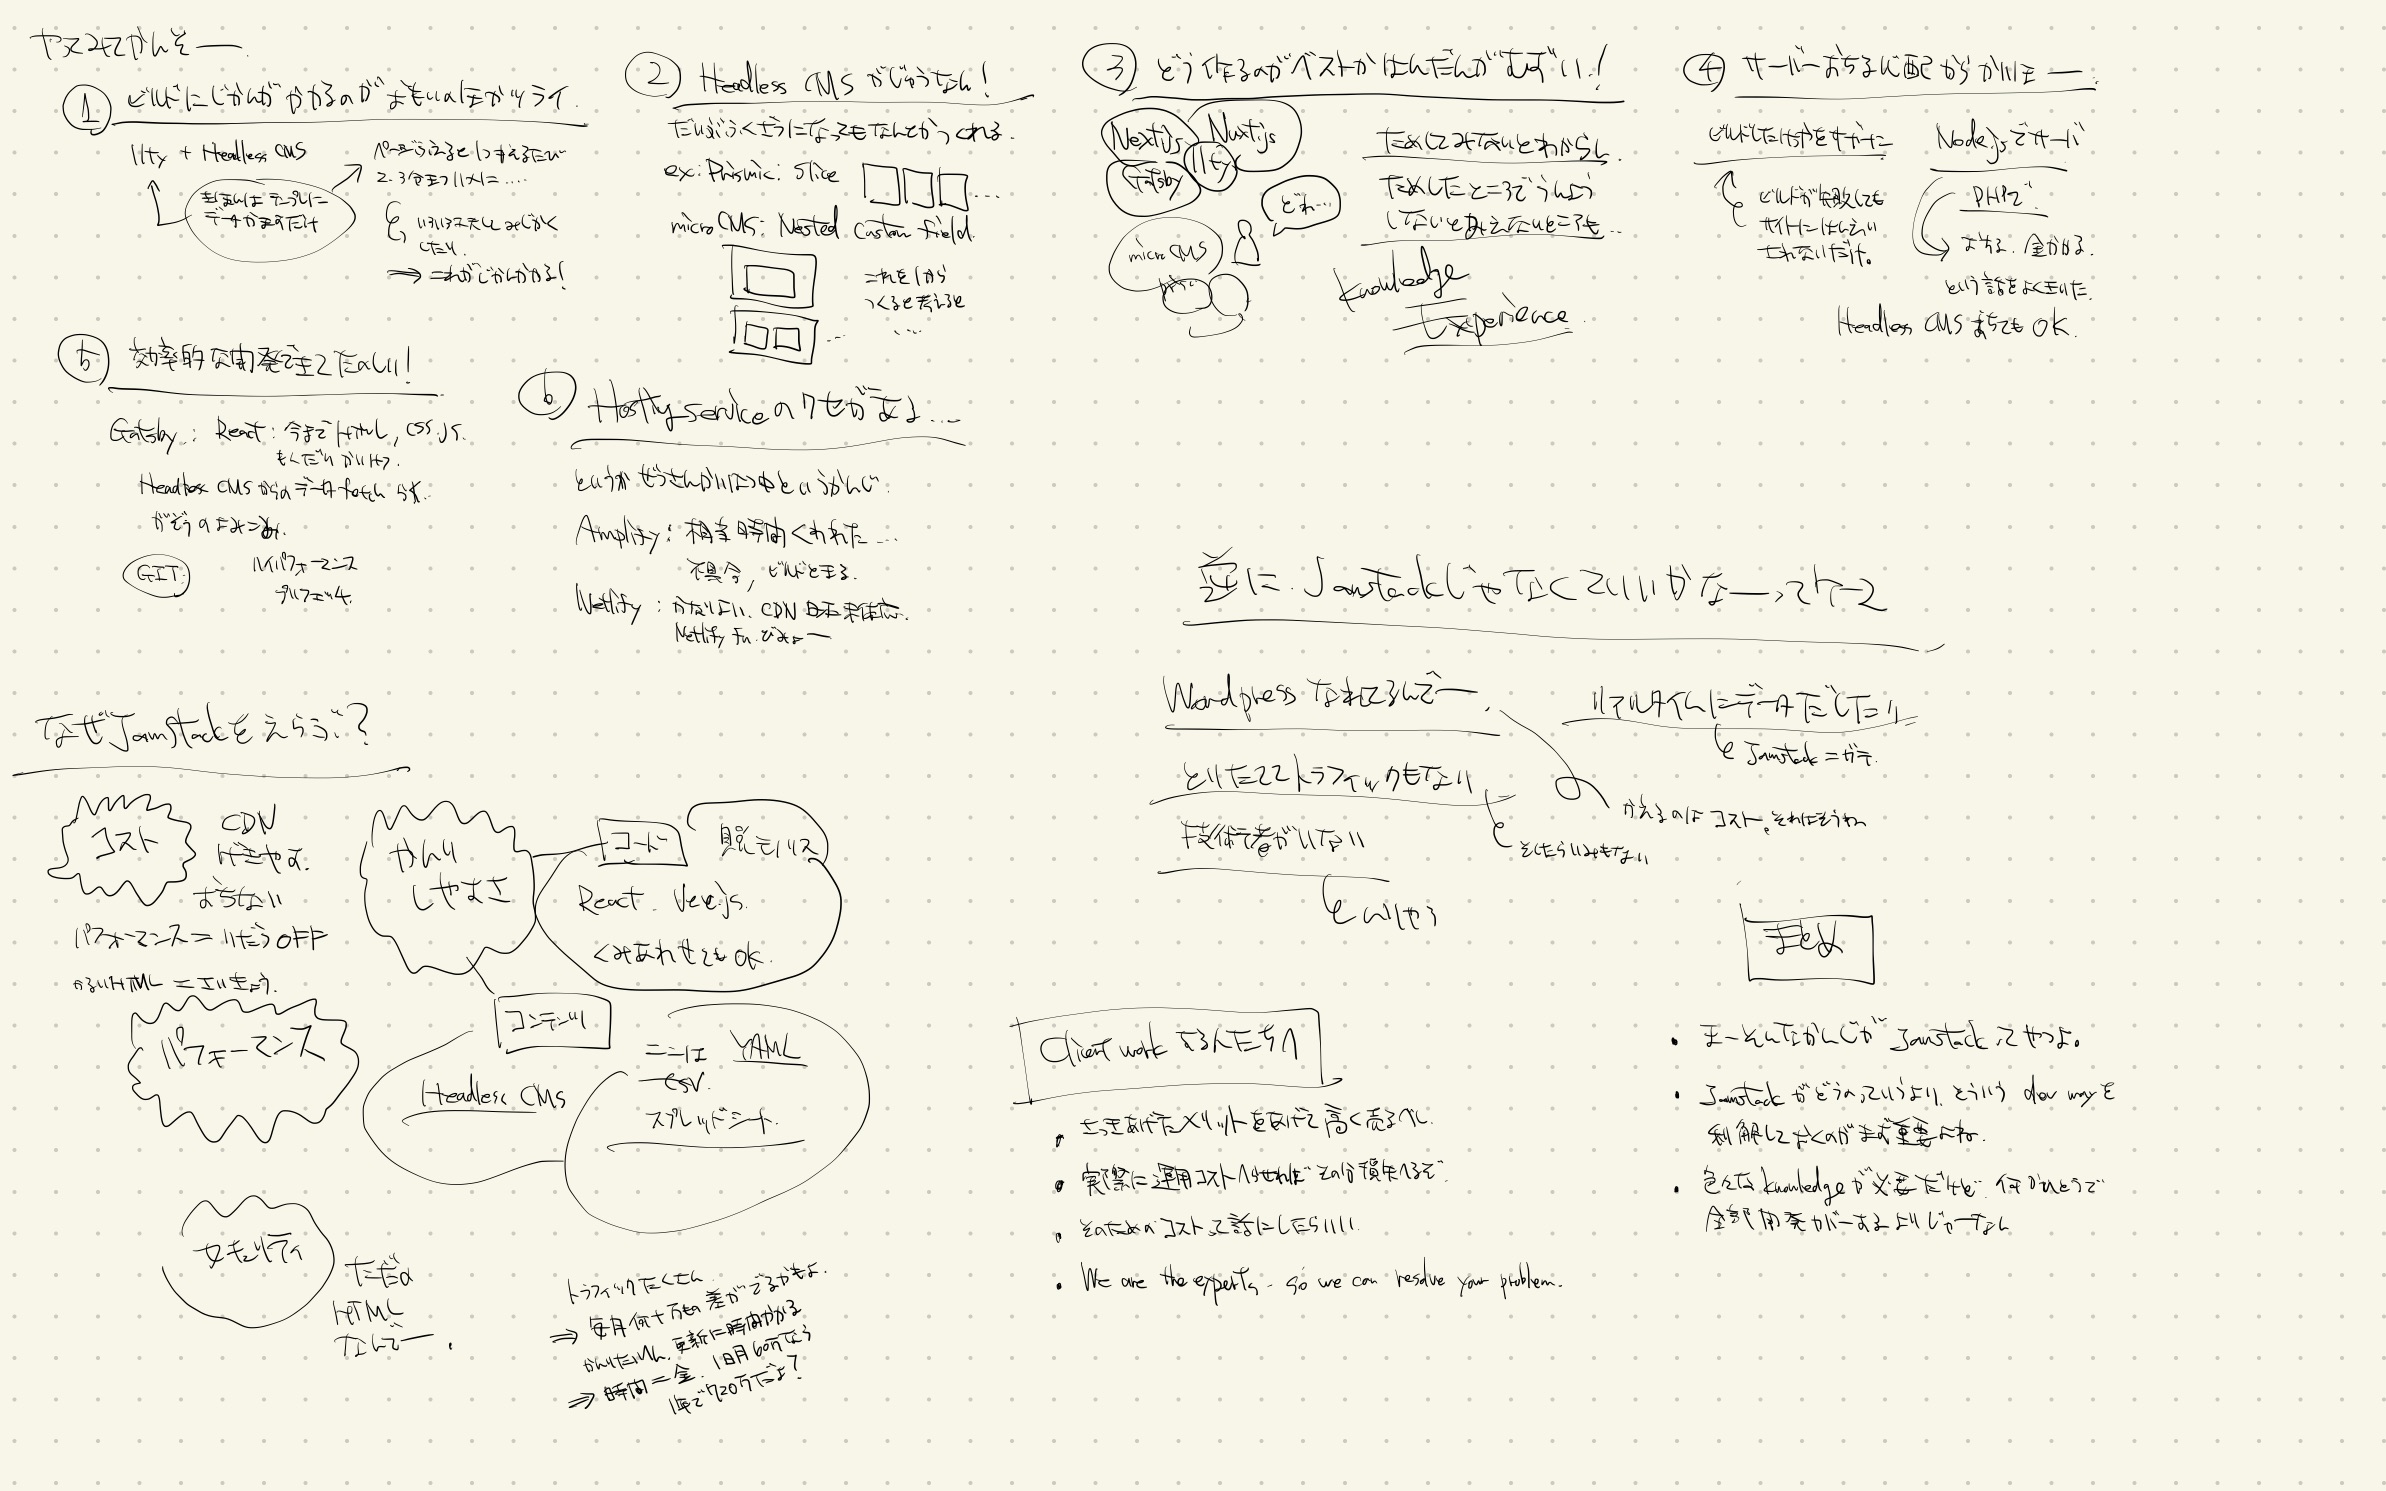 やってみてかんそー
① ビルドにじかんがかかるのがおもいのほかツライ.
11ty + Headless CMS
きほんは テンプレに
データかますだけ
ページふえると 1つかえるたび
2.3分まつ
みじかく
したり.
⇒ これがじかんかかる!
② Headless CMS がじゅうなん!
だいぶふくざつになってもなんとかつくれる.
ex: Prismic: Slice
...
micro CMS: Nested Custom field.
これを1から
つくると考えると
...
③ どう作るのがベストかはんだんがむずい!
Next.js
Nuxt.js
11ty
Gatsby
micro CMS
どれ...
ためしてみないとわからん.
ためしたところでうんよう
しないとみえないところも...
knowledge
Experience.
④ サーバーおちる心配からかいほー.
Node.jsでサーバ
ビルドが失敗しても
サイトにはんえい
されないだけ。
PHPで
おちる. 金かかる.
という話をよくきいた.
Headless CMS おちても OK.
⑤ 効率的な開発できてたのしい!
Gatsby : React : 今まで HTML, CSS, JS.
Headless CMS からのデータ fetch らく.
がぞうのよみこみ.
GIT
ハイパフォーマンス
プリフェッチ.
⑥ Hosting service のクセがあるよ...
というか ぜっさんかいはつ中というかんじ.
Amplify: 相当時間くわれた...
不具合, ビルドとまる.
Netlify : かなりよい. CDN 日本未対応.
Netlify fn. びみょー
なぜ Jamstack をえらぶ?
コスト
CDN
げきやす.
おちない
パフォーマンス = りだつ OFF
かるい HTML = さいきょう.
パフォーマンス
かんり
しやすさ
コード
React. Vue.js.
くみあわせても OK.
コンテンツ
Headless CMS
YAML
CSV.
スプレッドシート.
セキュリティ
ただの
HTML
なんでー.
トラフィックたくさん
⇒ 毎月何十万もの差がでるかもよ.
更新に時間かかる
⇒ 時間 = 金. 1ヶ月60万なら
1年で720万だよ?
逆に. Jamstack じゃなくていいかなーってケース
Wordpress なれてるんでー.
リアルタイムにデータだしたり
Jamstack = ガチ.
とりたててトラフィックもない
かえるのはコスト。それはそうやん
そしたらいみもない
技術者がいない
まとめ
Client work する人たちへ
・ さっきあげたメリットをあげて高く売るべし.
・ 実際に運用コストへらせればその分損失へるぞ.
・ そのためのコストって話にしたらいい.
・ We are the experts. so we can resolve your problem.
・ まーそんなかんじが Jamstack ってやつよ。
・ Jamstack がどうのっていうより, そういう dev way を
利解しておくのがまず重要よね.
・ 色んな knowledge が必要だけど 何かひとつで
全部開発がーするよりじゅーなん